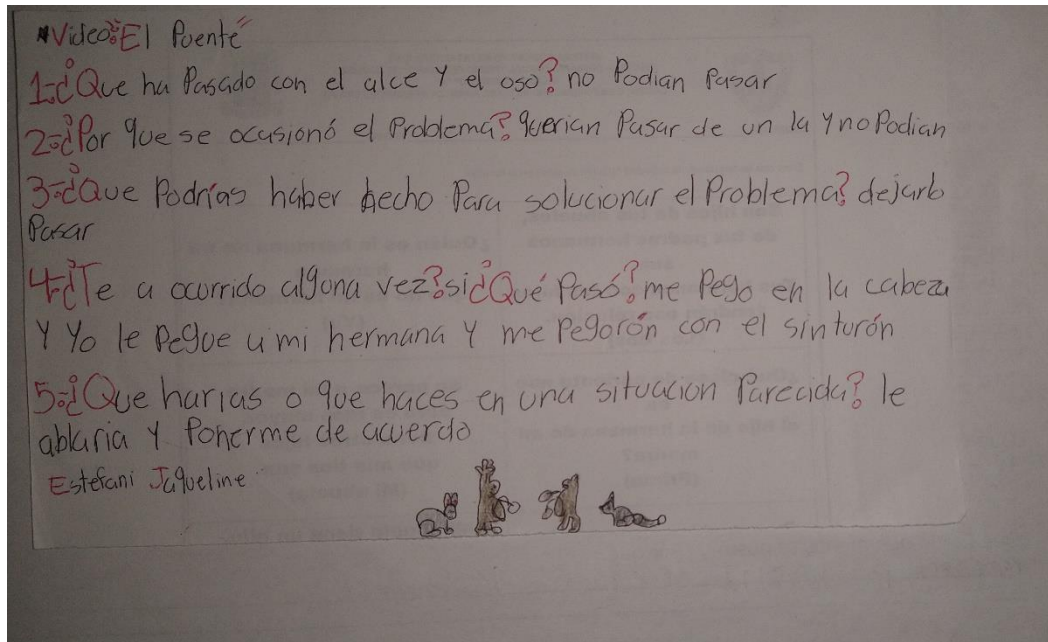 *Video: "El Puente"
1-¿Que ha Pasado con el alce Y el oso? no Podian Pasar
2-¿Por que se ocasionó el Problema? querian Pasar de un la y no Podian
3-¿Que Podrías haber hecho Para solucionar el Problema? dejarlo
Pasar
4-¿Te a ocurrido alguna vez? si ¿Qué Pasó? me Pego en la cabeza
Y Yo le Pegue a mi hermana Y me Pegorón con el sinturón
5-¿Que harias o que haces en una situacion Parecida? le
ablaria Y Ponerme de acuerdo
Estefani Jaqueline